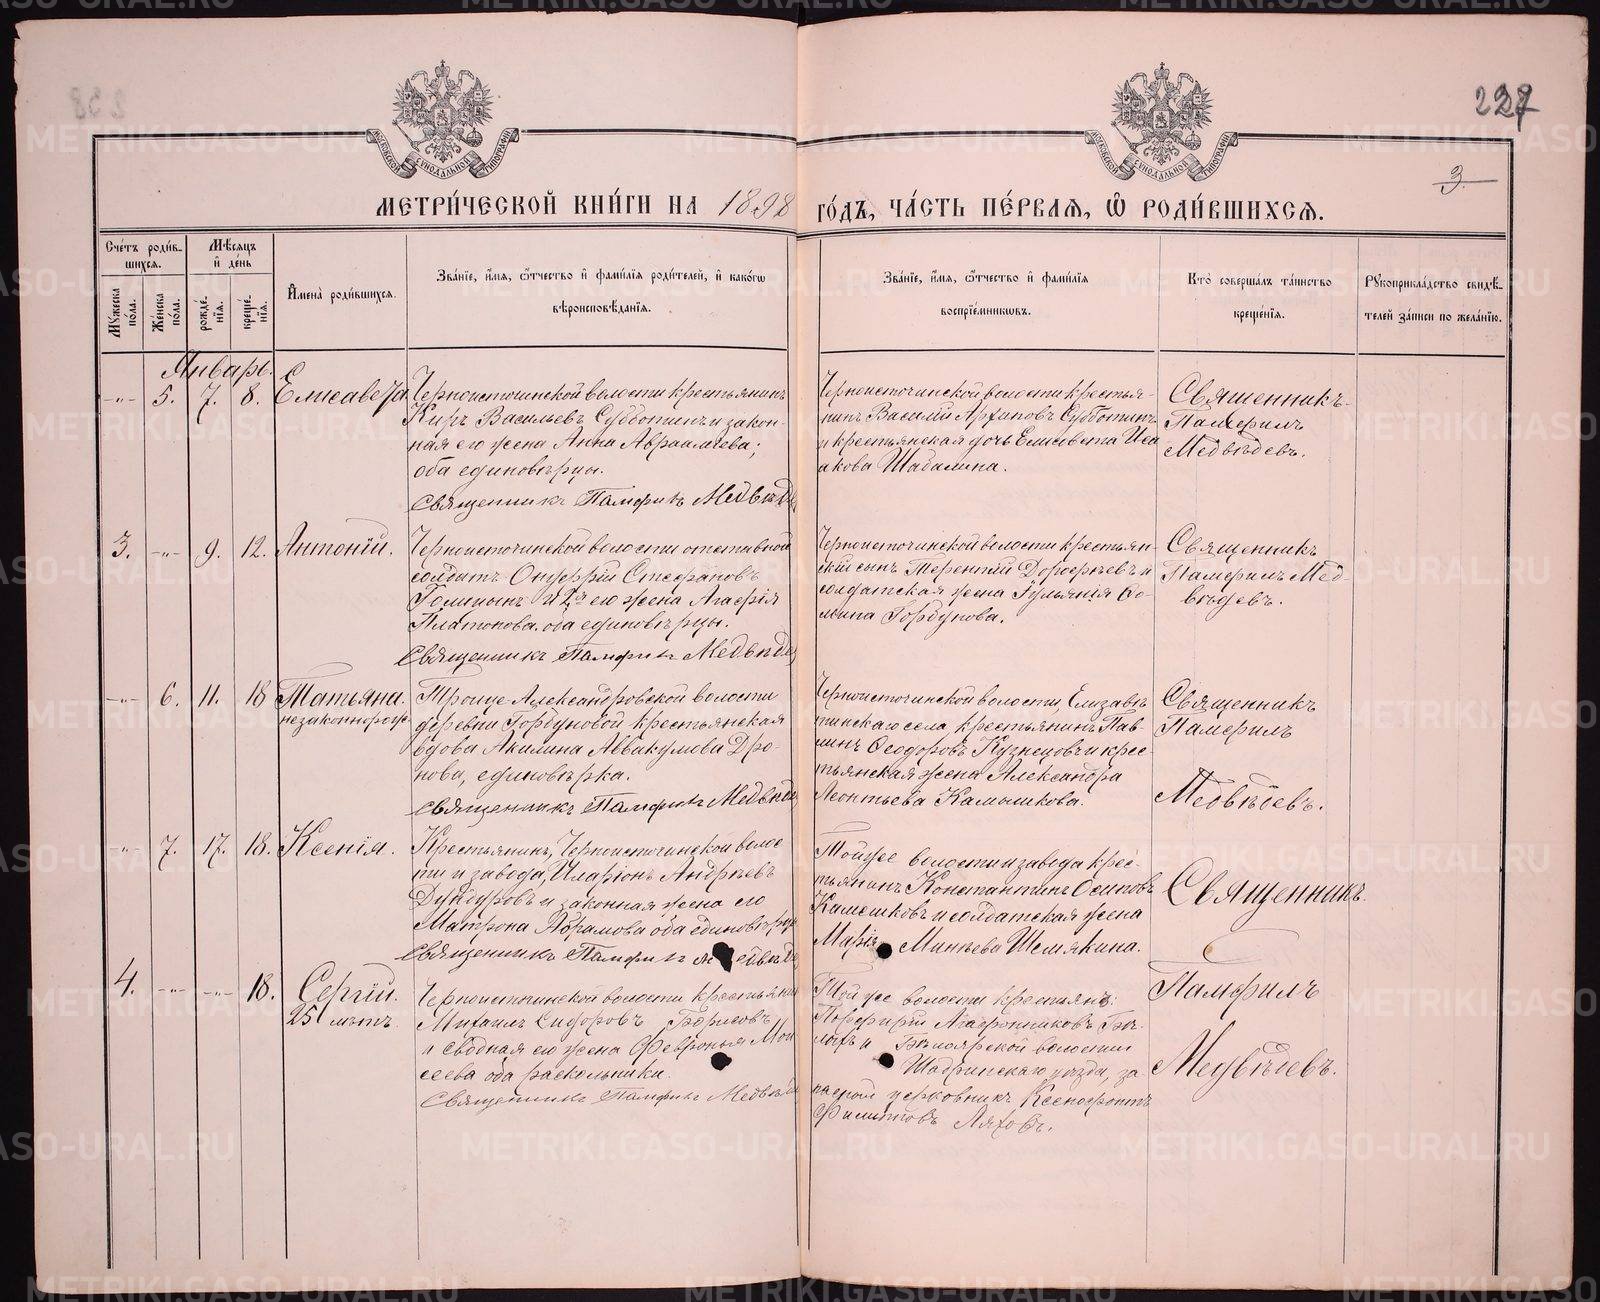 227
3
МОСКОВСКОЙ СУНОДАЛЬНОЙ ТИПОГРАФІИ
МОСКОВСКОЙ СУНОДАЛЬНОЙ ТИПОГРАФІИ
МЕТРИ́ЧЕСКОЙ КНИ́ГИ НА 1898 ГО́ДЪ, ЧА́СТЬ ПЕ́РВАЯ, Ѽ РОДИ́ВШИХСЯ.
Сче́тъ роди́в-
шихся.
Мѣ́сяцъ
и҆ де́нь
Му́жеска по́ла.
Же́нска по́ла.
рожде́-
нїя.
креще́-
нїя.
И҆мена̀ роди́вшихся.
Зва́нїе, и҆́мя, ѻ҆́тчество и҆ фами́лїя роди́телей, и҆ како́гѡ
вѣроисповѣ́данїя.
Зва́нїе, и҆́мя, ѻ҆́тчество и҆ фами́лїя
воспрїе́мникѡвъ.
Кто̀ соверша́лъ та́инство
креще́нїя.
Рꙋкоприкла́дство свидѣ́-
телей за́писи по жела́нїю.
Январь.
-„- 5. 7. 8. Елисавета
Черноисточинской волости крестьянинъ
Киръ Васильевъ Субботинъ и закон-
ная его жена Анна Авраамиева;
оба единовѣрцы.
Священникъ Памфилъ Медвѣде
Черноисточинской волости крестья-
нинъ Василій Архиповъ Субботинъ
и крестьянская дочь Елисавета Иса
акова Шадамина.
Священникъ
Памфилъ
Медвѣдевъ.
3. -„- 9. 12. Антоній.
Черноисточинской волости отставной
солдатъ Онуфрій Стефановъ
Голицынъ и 2я его жена Агафія
Платонова, оба единовѣрцы.
Священникъ Памфилъ Медвѣде
Черноисточинской волости крестьян-
скій сынъ Терентій Дорофѣевъ и
солдатская жена Іульянія Ѳо-
мина Горбунова.
Священникъ
Памфилъ Мед-
вѣдевъ.
-„- 6. 11. 18 Татьяна.
незаконнорож.
Троице-Александровской волости
деревни Горбуновой крестьянская
вдова Акилина Аввакумова Дро-
нова, единовѣрка.
Священникъ Памфилъ Медвѣде
Черноисточинской волости, Елизавѣ
тинскаго села крестьянинъ Пав-
линъ Ѳеодоровъ Кузнецовъ и крес-
тьянская жена Александра
Леонтьева Камышкова.
Священникъ
Памфилъ
Медвѣдевъ.
-„- 7. 17. 18. Ксенія.
Крестьянинъ, Черноисточинской волос
ти и завода, Иларіонъ Андрѣевъ
Дундуровъ и законная жена его
Матрона Абрамова оба единовѣрцы
Священникъ Памфилъ Медвѣде
Той же волости и завода крес-
тьянинъ Константинъ Осиповъ
Камешковъ и солдатская жена
Марія Минѣева Шемякина.
Священникъ
4. -„- -„- 18. Сергій.
25 лѣтъ.
Черноисточинской волости крестьянинъ
Михаилъ Сидоровъ Борисовъ
и сводная его жена Февронья Мои
сеева оба раскольники.
Священникъ Памфилъ Медвѣде
Той же волости крестьян:
Порфирій Агафонниковъ
и Бѣлоярской волости
Шадринскаго уѣзда, за
церковникъ Ксенофонтъ
Филипповъ Ляховъ.
Памфилъ
Медвѣдевъ.
METRIKI.GASO-URAL.RU